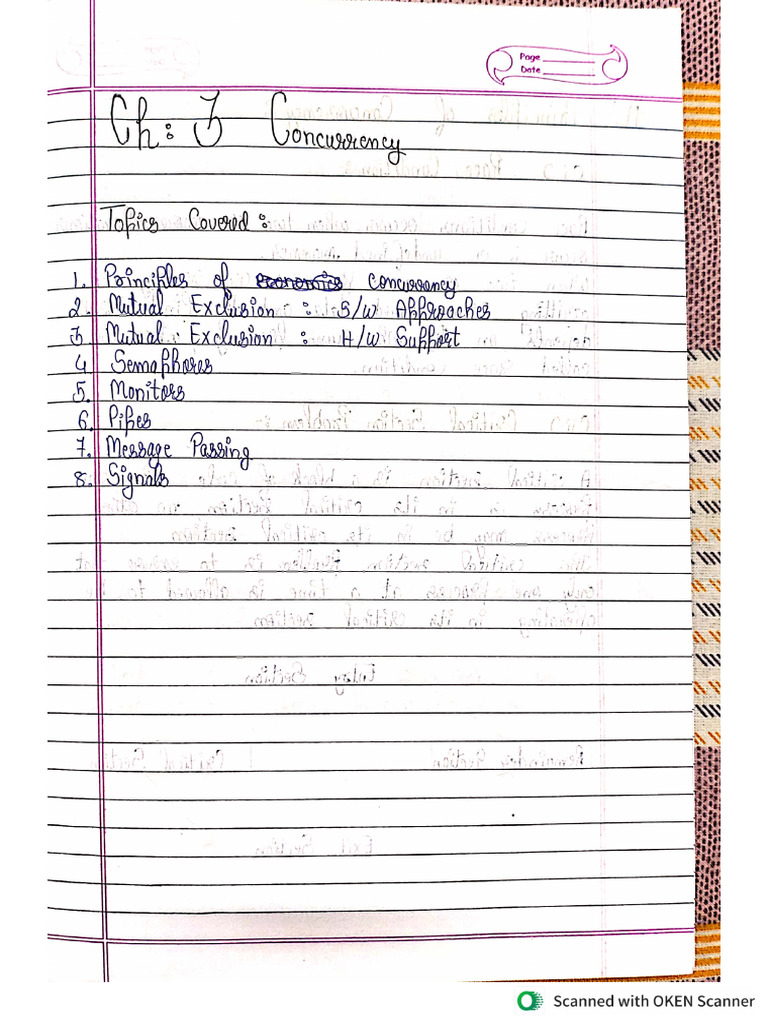 Page
Date
Ch: 3 Concurrency
Topics Covered :
1. Principles of economics concurrency
2. Mutual Exclusion : S/W Approaches
3 Mutual Exclusion : H/W Support
4 Semaphores
5. Monitors
6. Pipes
7. Message Passing
8. Signals
Scanned with OKEN Scanner